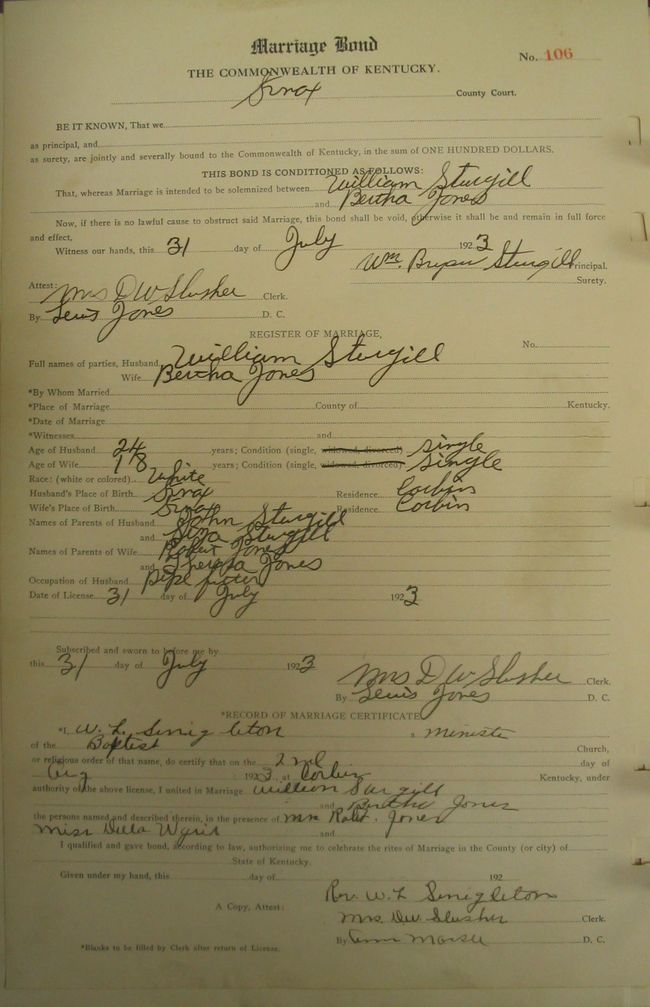 Marriage Bond
No. 106
THE COMMONWEALTH OF KENTUCKY.
Knox County Court.
BE IT KNOWN, That we
as principal, and
as surety, are jointly and severally bound to the Commonwealth of Kentucky, in the sum of ONE HUNDRED DOLLARS.
THIS BOND IS CONDITIONED AS FOLLOWS:
That, whereas Marriage is intended to be solemnized between William Sturgill
and Bertha Jones
Now, if there is no lawful cause to obstruct said Marriage, this bond shall be void, otherwise it shall be and remain in full force
and effect.
Witness our hands, this 31 day of July 1923
Wm. Sturgill Principal.
Surety.
Attest: Mrs D W Slusher Clerk.
By Lewis Jones D. C.
REGISTER OF MARRIAGE.
No.
Full names of parties, Husband William Sturgill
Wife Bertha Jones
*By Whom Married
*Place of Marriage County of Kentucky.
*Date of Marriage
*Witnesses and
Age of Husband 24 years; Condition (single, widowed, divorced) Single
Age of Wife 18 years; Condition (single, widowed, divorced) Single
Race: (white or colored) White
Husband's Place of Birth Knox Residence Corbin
Wife's Place of Birth Knox Residence Corbin
Names of Parents of Husband John Sturgill
and Sturgill
Names of Parents of Wife Robert Jones
and Jones
Occupation of Husband Pipe fitter
Date of License 31 day of July 1923
Subscribed and sworn to before me by
this 31 day of July 1923
Mrs D W Slusher Clerk.
By Lewis Jones D. C.
*RECORD OF MARRIAGE CERTIFICATE
*I, W. L. Singleton a Minister
of the Baptist Church,
or religious order of that name, do certify that on the 2nd day of
Aug 1923, at Corbin Kentucky, under
authority of the above license, I united in Marriage William Sturgill
and Bertha Jones
the persons named and described therein, in the presence of Mr Robt. Jones
Miss Della and
I qualified and gave bond, according to law, authorizing me to celebrate the rites of Marriage in the County (or city) of
State of Kentucky.
Given under my hand, this day of 192
Rev. W. L Singleton
A Copy, Attest: Mrs. D W Slusher Clerk.
By D. C.
*Blanks to be filled by Clerk after return of License.